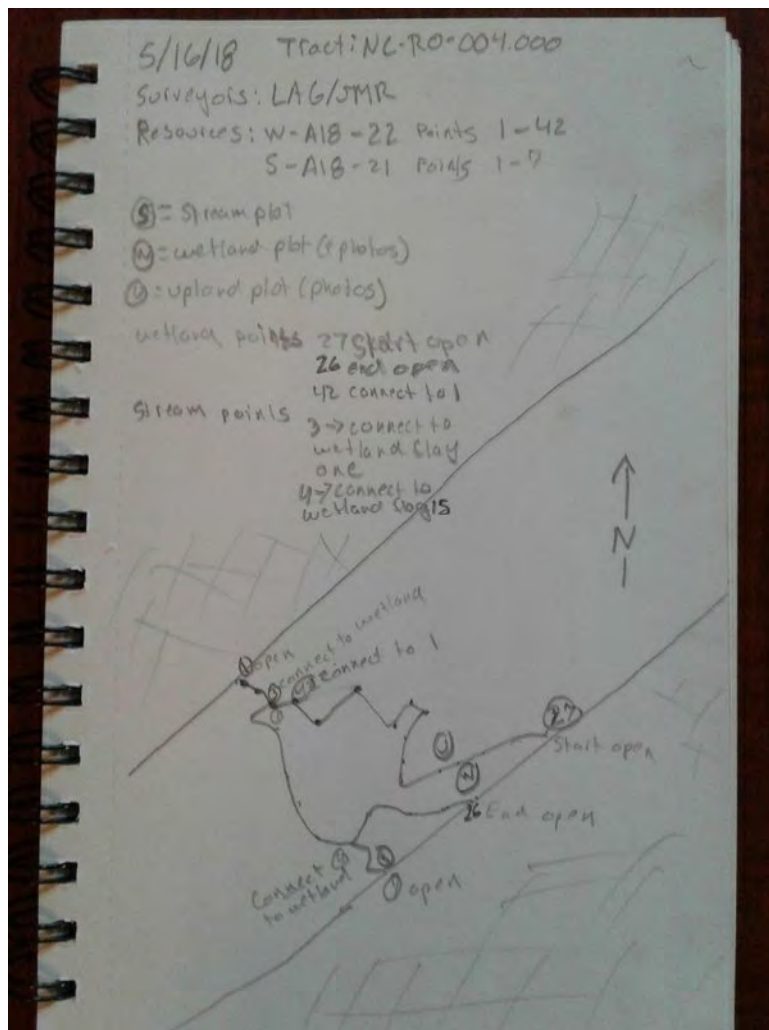 5/16/18 Tract: NC-RO-004.000
Surveyors: LAG/JMR
Resources: W-A18-22 Points 1-42
S-A18-21 Points 1-7
S = Stream plot
W = wetland plot (+photos)
U = upland plot (photos)
wetland points 27 Start open
26 end open
42 connect to 1
Stream points 3 → connect to
wetland flag
one
4 → connect to
wetland flag 15
N
1 open
3 connect to wetland
42 connect to 1
27
Start open
U
W
26 End open
4
Connect
to wetland
open